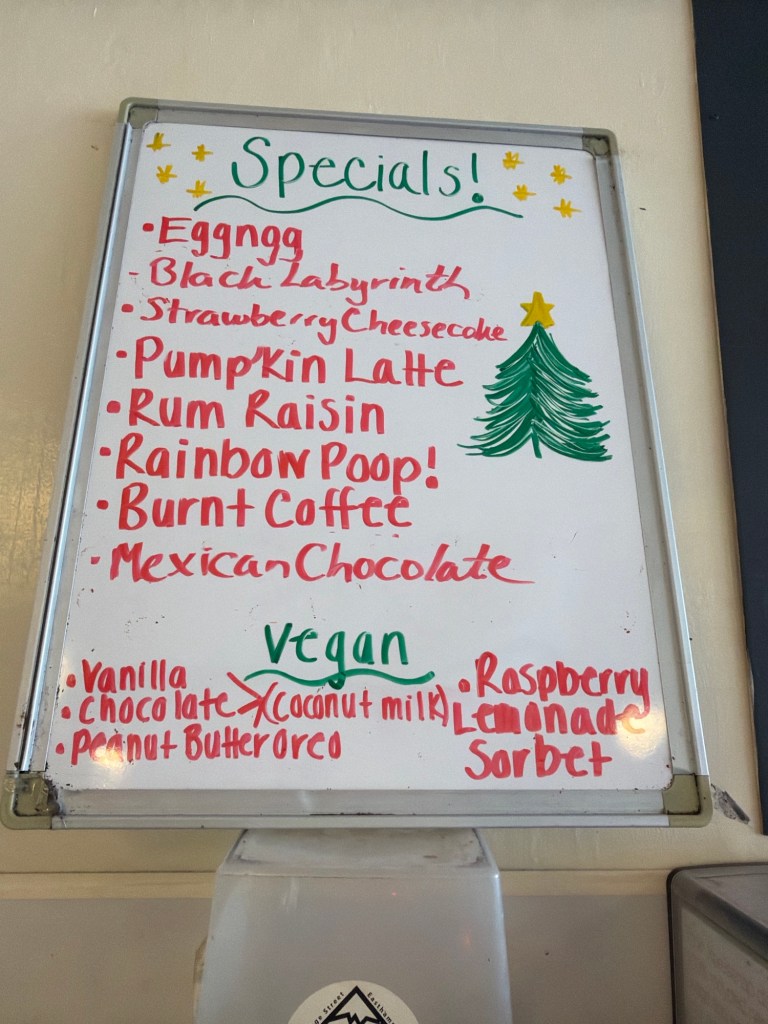 Specials!
• Eggngg
- Black Labyrinth
• Strawberry Cheesecake
• Pumpkin Latte
• Rum Raisin
• Rainbow Poop!
• Burnt Coffee
• Mexican Chocolate
Vegan
• Vanilla
• Chocolate (coconut milk)
• Peanut Butter Oreo
• Raspberry
Lemonade
Sorbet
Street